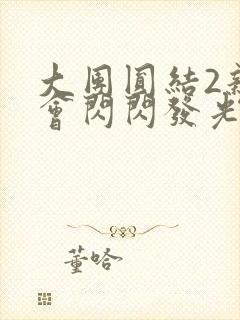 大團圓結2
會閃閃發光
董哈